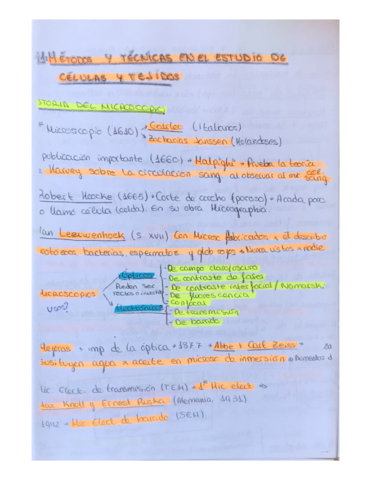 MÉTODOS Y TÉCNICAS EN EL ESTUDIO DE
CÉLULAS Y TEJIDOS
STORIA DEL MICROSCOPIO
Microscopio (1610) Galileo (italianos)
Zacharias Janssen (Holandeses)
publicación importante (1660) → Malpighi → Prueba la teoría
Harvey sobre la circulación sang. al observar al mic
sang.
Robert Hoocke (1665) → Corte de corcho (poroso) → A cada poro
lo llamó célula (celda). En su obra Micrographia.
Leeuwenhoek (S. XVII) Con micros. fabricados x él describe
protozoos, bacterias, espermatoz y glob rojos → Nunca vistos
Ópticos
Pueden ser
rectos o invertidos
De campo claro/oscuro
De contraste de fases
De contraste interfacial / Nomarski
De fluorescencia
Confocal
Microscopios
Electrónicos
De transmisión
De barrido
Mejoras → de la óptica → 1877 → Abbe y Carl Zeiss →
sustituyen agua x aceite en microsc de inmersión →
Mic. Elect. de transmisión (TEM) → 1º Mic elect
Max Knoll y Ernest Ruska (Alemania, 1931)
1942 → Mic Elect de barrido (SEM)